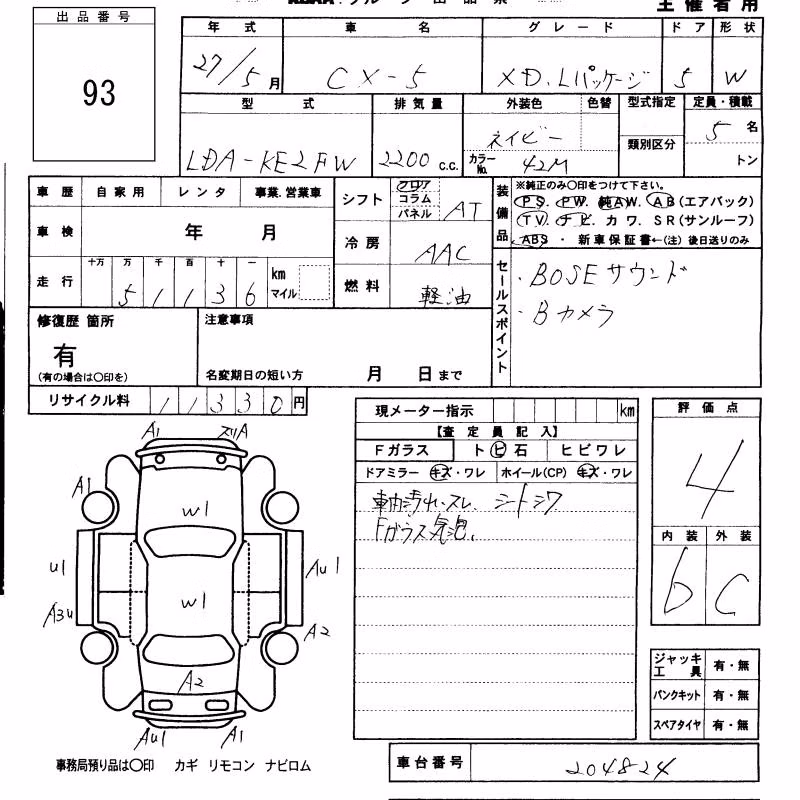 主催者用
出品番号
93
年式 車名 グレード ドア 形状
27/5月 CX-5 XD.Lパッケージ 5 W
型式 排気量 外装色 色替 型式指定 定員・積載
LDA-KE2FW 2200c.c. ネイビー 類別区分 5名
カラーNo. 42M トン
車歴 自家用 レンタ 事業.営業車
車検 年 月
走行 十万 万 千 百 十 一
5 1 1 3 6 km マイル
シフト フロア コラム パネル AT
冷房 AAC
燃料 軽油
装備品
※純正のみ○印をつけて下さい。
PS. PW. 純AW. AB(エアバック)
TV. ナビ. カワ. SR(サンルーフ)
ABS ・ 新車保証書←(注)後日送りのみ
セールスポイント
・BOSEサウンド
・Bカメラ
修復歴 箇所
有
(有の場合は○印を)
注意事項
名変期日の短い方 月 日まで
リサイクル料 11330円
現メーター指示 km
【査定員記入】
Fガラス トビ石 ヒビワレ
ドアミラー キズ・ワレ ホイール(CP) キズ・ワレ
車内汚れ・スレ、シートシワ
Fガラス気泡.
評価点
4
内装 外装
b C
ジャッキ工具 有・無
パンクキット 有・無
スペアタイヤ 有・無
A1 スリA
A1 W1
U1 AU1
W1
A3U A2
A2
AU1 A1
事務局預り品は○印 カギ リモコン ナビロム
車台番号 204824